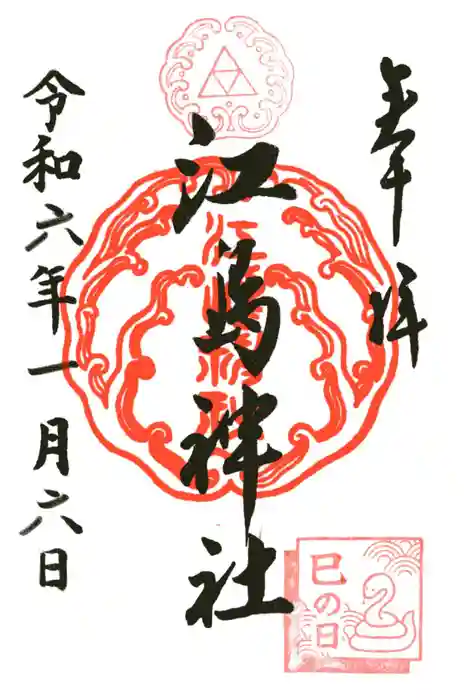 奉拝
江島神社
令和六年一月六日
巳の日